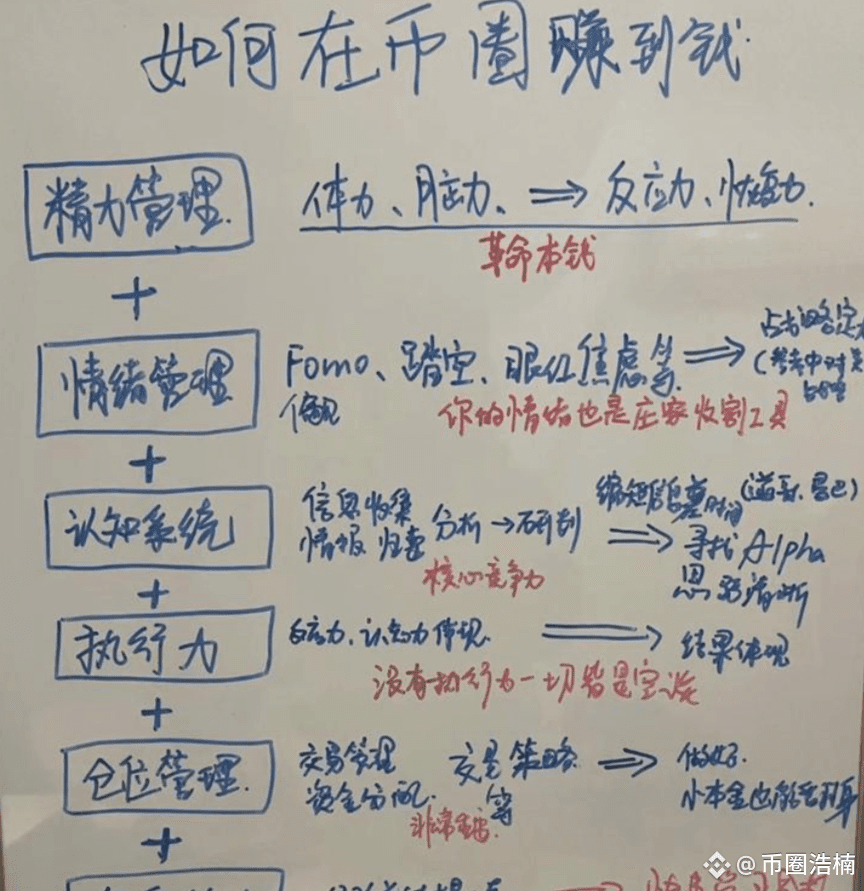 如何在币圈赚到钱
精力管理. 体力、脑力、⇒ 反应力、恢复力.
革命本钱
+
情绪管理 Fomo、踏空、眼红焦虑等. ⇒
偏见
你的情绪也是庄家收割工具
+
认知系统 信息收集 分析→研判 ⇒ 缩短 时间
情报 归纳 寻找Alpha
核心竞争力 思路清晰
+
执行力 反应力、认知力体现. ⇒ 结果体现
没有执行力一切皆是空谈
+
仓位管理. 交易管理 交易策略 ⇒ 做好.
资金分配. 等 小本金也能翻身
非常重要.
+
@币圈浩楠